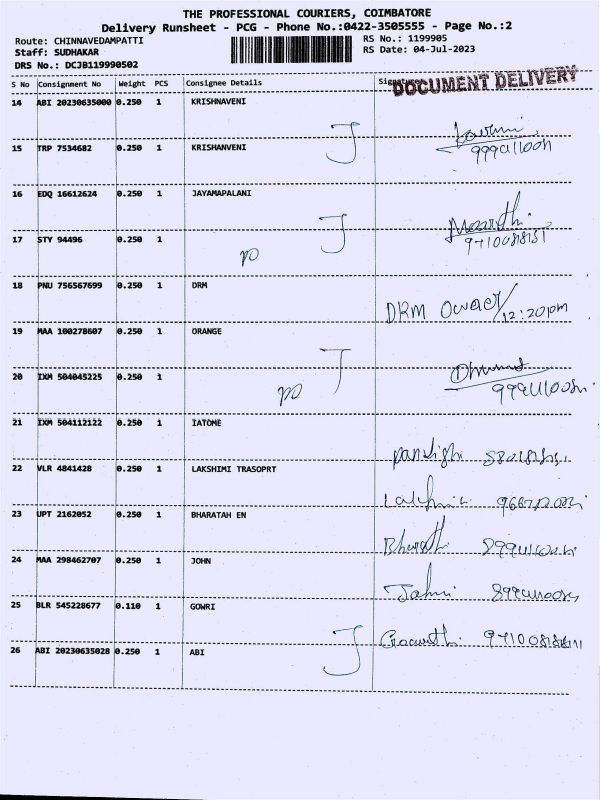 THE PROFESSIONAL COURIERS, COIMBATORE
Delivery Runsheet - PCG - Phone No.:0422-3505555 - Page No.:2
Route: CHINNAVEDAMPATTI
Staff: SUDHAKAR
DRS No.: DCJB119990502
RS No.: 1199905
RS Date: 04-Jul-2023
S No Consignment No Weight PCS Consignee Details Signature
DOCUMENT DELIVERY
14 ABI 20230635000 0.250 1 KRISHNAVENI
15 TRP 7534682 0.250 1 KRISHANVENI
16 EDQ 16612624 0.250 1 JAYAMAPALANI
17 STY 94496 0.250 1
18 PNU 756567699 0.250 1 DRM
DRM Owner/12:20pm
19 MAA 100278607 0.250 1 ORANGE
20 IXM 504045225 0.250 1
21 IXM 504112122 0.250 1 IATOME
22 VLR 4841428 0.250 1 LAKSHIMI TRASOPRT
23 UPT 2162052 0.250 1 BHARATAH EN
Bharath
24 MAA 298462707 0.250 1 JOHN
25 BLR 545228677 0.110 1 GOWRI
26 ABI 20230635028 0.250 1 ABI